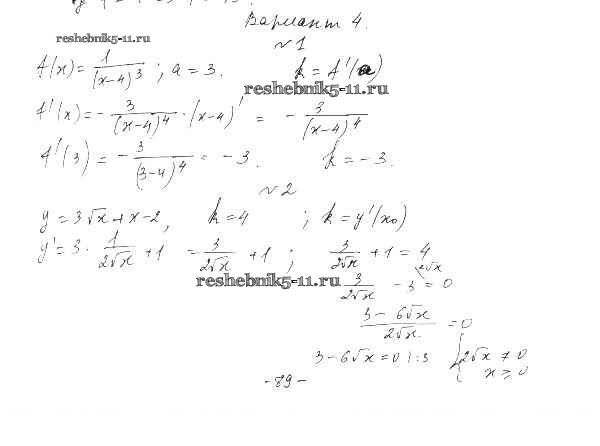 Вариант 4.
reshebnik5-11.ru
№1
f(x) = 1/(x-4)^3 ; a = 3. k = f'(a)
reshebnik5-11.ru
f'(x) = - 3/(x-4)^4 · (x-4)' = - 3/(x-4)^4
f'(3) = - 3/(3-4)^4 = -3. k = -3.
№2
y = 3√x + x - 2, k = 4 ; k = y'(x₀)
y' = 3 · 1/(2√x) + 1 = 3/(2√x) + 1 ; 3/(2√x) + 1 = 4
reshebnik5-11.ru
3/(2√x) - 3 = 0
2√x
(3 - 6√x)/(2√x) = 0
3 - 6√x = 0 |:3 { 2√x ≠ 0
x ≥ 0
- 89 -